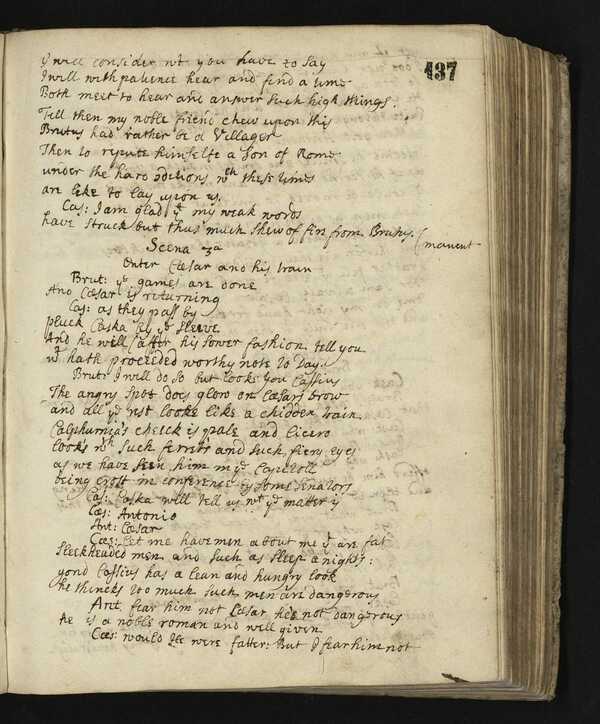 437
I will consider wt you have to say
I will with patience hear and find a time
Both meet to hear and answer such high things.
Tell then my noble friend chew upon this
Brutus had rather be a Villager
Then to repute himselfe a Son of Rome
under the hard conditions wth these times
are like to lay upon us.
Cas: I am glad yt my weak words
have struck but thus much shew of fire from Brutus. (manent
Scena 3a
Enter Cæsar and his train
Brut: ye games are done
And Cæsar is returning
Cas: as they pass by
pluck Caska by ye sleeve
And he will (after his sower fashion tell you
wt hath proceeded worthy note to day.
Brut: I will do so but looke you Cassius
The angry spot does glow on Cæsars brow
and all ye rest looke like a chidden train.
Calphurnia's cheeck is pale and Cicero
look's wth such ferrets and such fiery eyes
as we have seen him in ye Capitoll
being crost in conference by some Senators
Cas: Caska will tell us wt ye matter is
Cæs: Antonio
Ant: Cæsar
Cæs: let me have men about me yt are fat
Sleekheaded men and such as sleep a nights:
yond Cassius has a lean and hungry look
he thincks too much such men are dangerous
Ant. fear him not Cæsar hees not dangerous
he is a noble roman and well given
Cæs: would he were fatter: But I fear him not